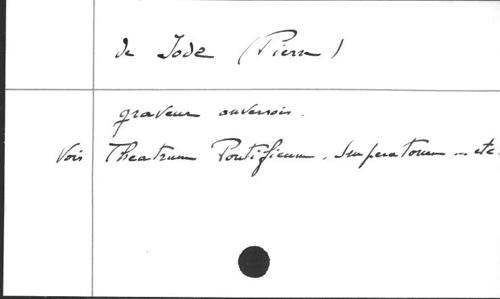 de Jode (Pierre)
graveur anversois.
Vois Theatrum Pontificum, Imperatorum ... etc.